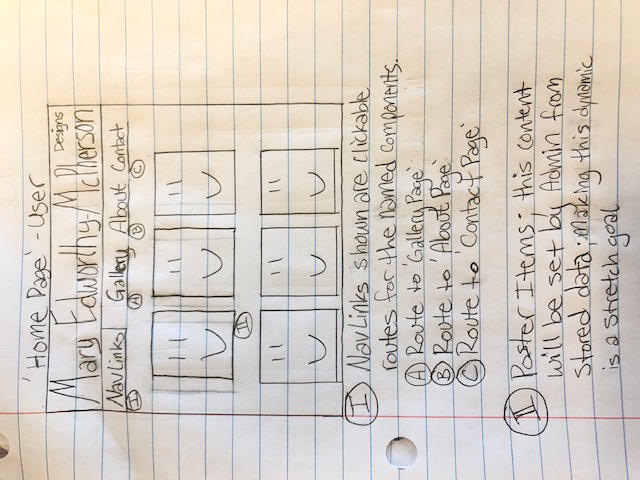 'Home Page' - User
Designs
Mary Edworthy-McPherson
NavLinks Gallery About Contact
I A B C
II
I NavLinks shown are clickable
routes for the named components.
A Route to 'Gallery Page'
B Route to 'About Page'
C Route to 'Contact Page'
II Poster Items; this content
will be set by Admin from
stored data; making this dynamic
is a stretch goal